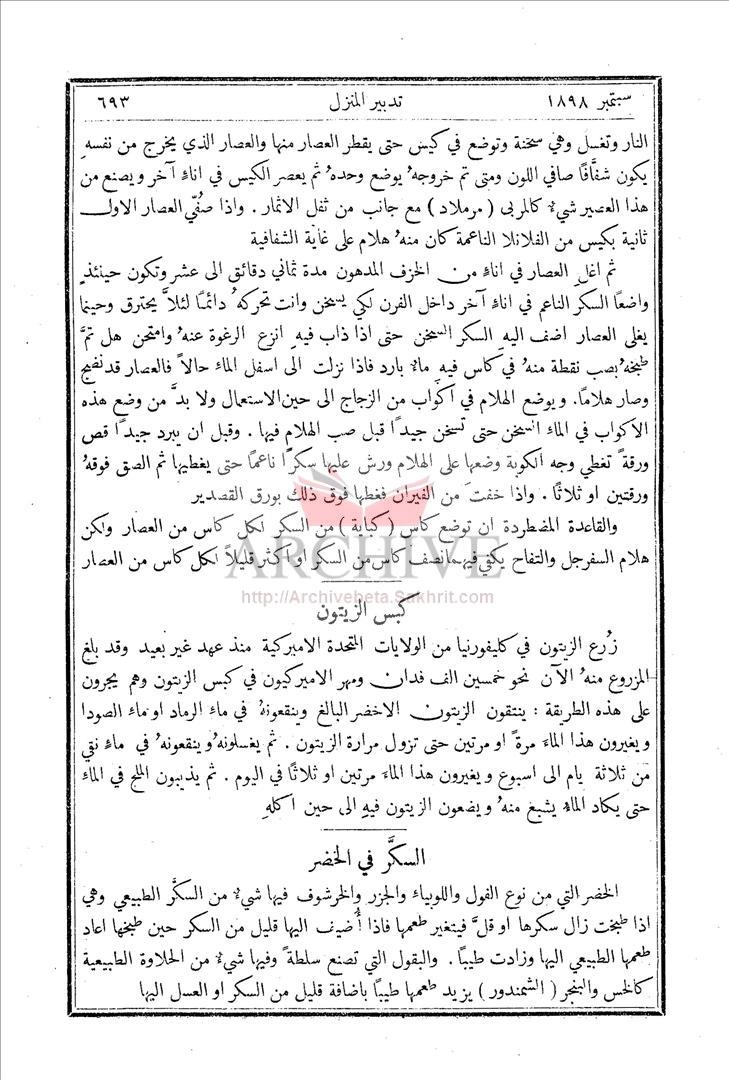 سبتمبر ١٨٩٨ تدبير المنزل ٦٩٣
النار وتغسل وهي سخنة وتوضع في كيس حتى يقطر العصار منها والعصار الذي يخرج من نفسهِ
يكون شفَّافًا صافي اللون ومتى تم خروجهُ يوضع وحدهُ ثم يعصر الكيس في اناءٍ آخر ويصنع من
هذا العصير شيءٌ كالمربى ( مرملاد ) مع جانب من ثفل الاثمار . واذا صُفّي العصار الاول
ثانية بكيس من الفلانلا الناعمة كان منهُ هلام على غاية الشفافية
ثم اغلِ العصار في اناءٍ من الخزف المدهون مدة ثماني دقائق الى عشر وتكون حينئذٍ
واضعًا السكر الناعم في اناءٍ آخر داخل الفرن لكي يسخن وانت تحركهُ دائمًا لئلاَّ يحترق وحينما
يغلى العصار اضف اليهِ السكر السخن حتى اذا ذاب فيهِ انزع الرغوة عنهُ وامتحن هل تمَّ
طبخهُ بصب نقطة منهُ في كاس فيهِ ماءٌ بارد فاذا نزلت الى اسفل الماء حالاً فالعصار قد نضج
وصار هلامًا. ويوضع الهلام في اكواب من الزجاج الى حين الاستعمال ولا بدَّ من وضع هذه
الاكواب في الماء السخن حتى تسخن جيدًا قبل صب الهلام فيها . وقبل ان يبرد جيدًا قص
ورقةً تغطي وجه الكوبة وضعها على الهلام ورش عليها سكرًا ناعمًا حتى يغطيها ثم الصق فوقهُ
ورقتين او ثلاثًا . واذا خفتَ من الفيران فغطها فوق ذلك بورق القصدير
والقاعدة المضطردة ان توضع كاس ( كباية ) من السكر لكل كاس من العصار ولكن
هلام السفرجل والتفاح يكفي فيهما نصف كاس من السكر او اكثر قليلاً لكل كاس من العصار
ARCHIVE
http://Archivebeta.Sakhrit.com
كبس الزيتون
زُرع الزيتون في كليفورنيا من الولايات المتحدة الاميركية منذ عهد غير بعيد وقد بلغ
المزروع منهُ الآن نحو خمسين الف فدان ومهر الاميركيون في كبس الزيتون وهم يجرون
على هذه الطريقة : ينتقون الزيتون الاخضر البالغ وينقعونهُ في ماء الرماد او ماء الصودا
ويغيرون هذا الماء مرةً او مرتين حتى تزول مرارة الزيتون . ثم يغسلونهُ وينقعونهُ في ماءٍ نقي
من ثلاثة يام الى اسبوع ويغيرون هذا الماء مرتين او ثلاثًا في اليوم . ثم يذيبون الملح في الماء
حتى يكاد الماءُ يشبع منهُ ويضعون الزيتون فيهِ الى حين اكلهِ
السكَّر في الخضر
الخضر التي من نوع الفول واللوبياء والجزر والخرشوف فيها شيءٌ من السكَّر الطبيعي وهي
اذا طبخت زال سكرها او قلَّ فيتغير طعمها فاذا أُضيف اليها قليل من السكر حين طبخها اعاد
طعمها الطبيعي اليها وزادت طيبًا . والبقول التي تصنع سلطةً وفيها شيءٌ من الحلاوة الطبيعية
كالخس والبنجر ( الشمندور ) يزيد طعمها طيبًا باضافة قليل من السكر او العسل اليها